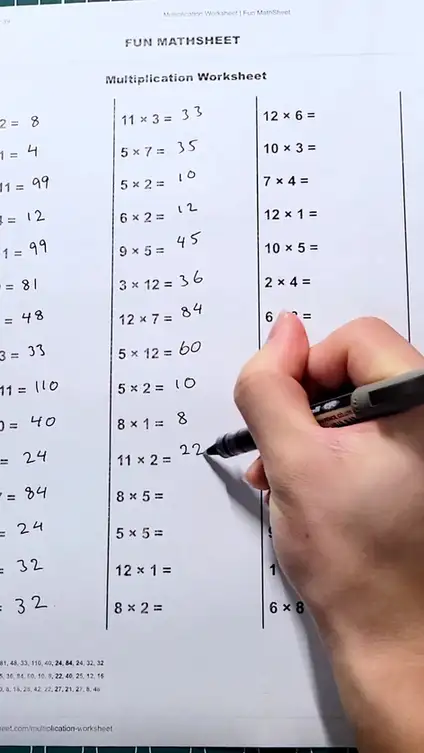 Multiplication Worksheet | Fun MathSheet
FUN MATHSHEET
Multiplication Worksheet
2 = 8
1 = 4
11 = 99
= 12
1 = 99
= 81
= 48
3 = 33
11 = 110
0 = 40
= 24
= 84
= 24
= 32
= 32
11 × 3 = 33
5 × 7 = 35
5 × 2 = 10
6 × 2 = 12
9 × 5 = 45
3 × 12 = 36
12 × 7 = 84
5 × 12 = 60
5 × 2 = 10
8 × 1 = 8
11 × 2 = 22
8 × 5 =
5 × 5 =
12 × 1 =
8 × 2 =
12 × 6 =
10 × 3 =
7 × 4 =
12 × 1 =
10 × 5 =
2 × 4 =
6 =
1
6 × 8
81, 48, 33, 110, 40, 24, 84, 24, 32, 32
eet.com/multiplication-worksheet